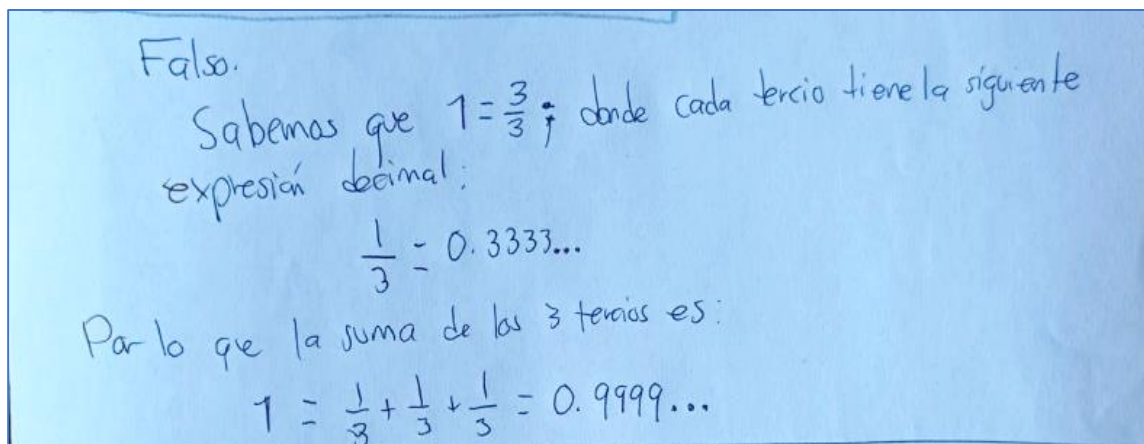 Falso.
Sabemos que 1 = 3/3; donde cada tercio tiene la siguiente
expresión decimal:
1/3 = 0.3333...
Por lo que la suma de los 3 tercios es:
1 = 1/3 + 1/3 + 1/3 = 0.9999...